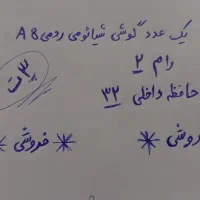 یک عدد گوشی شیائومی ردمی A8
رام ۲
۳ ت
حافظه داخلی ۳۲
فروشی
فروشی